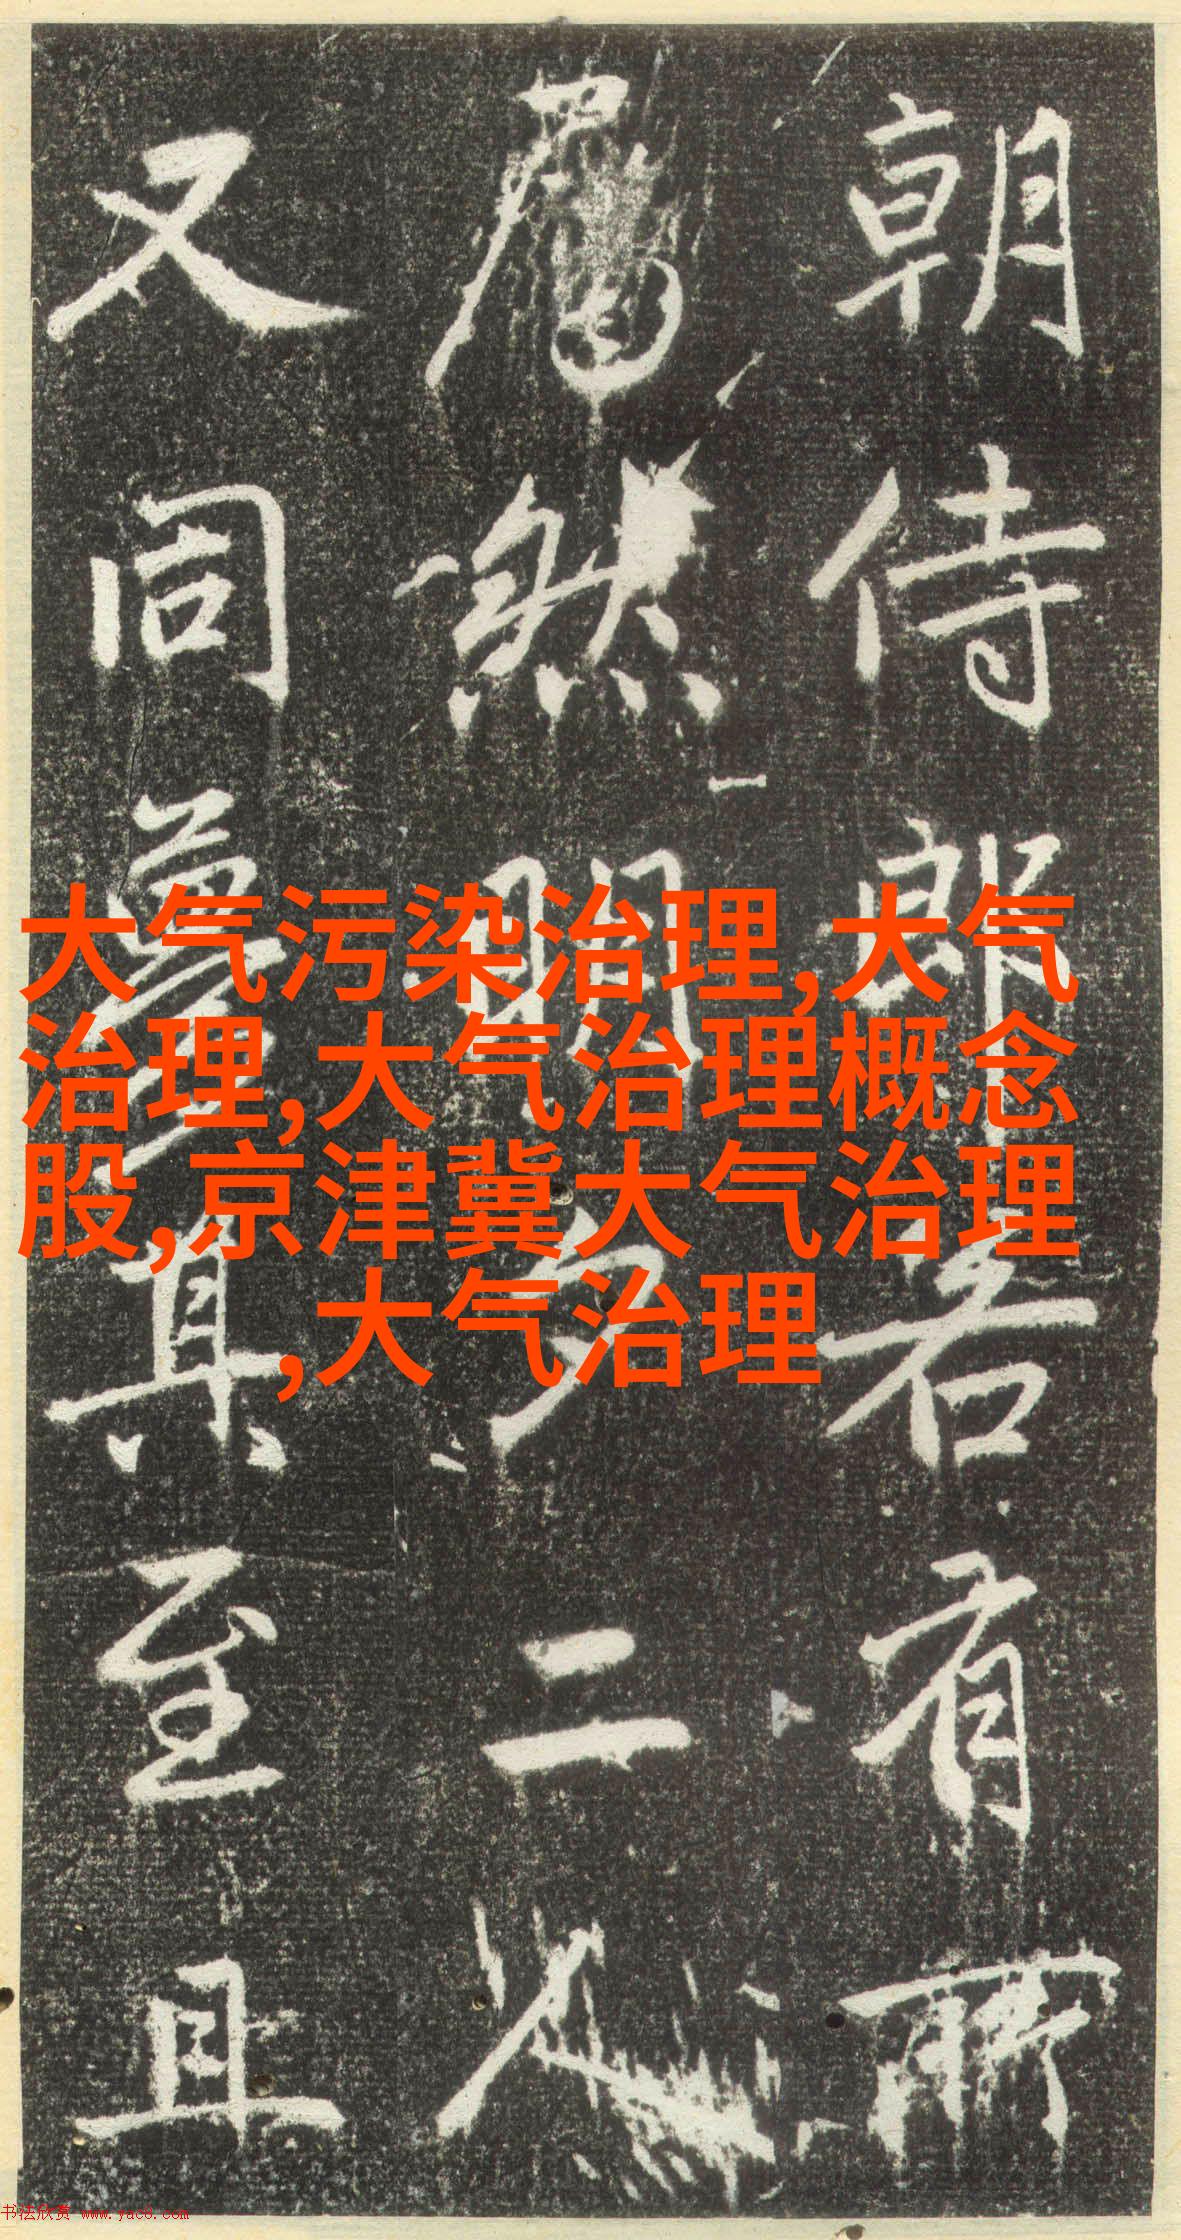 朝侍郎若有所
然開户二人
又同真至且
大气污染治理,大气
治理,大气治理概念
股,京津冀大气治理
,大气治理
书法欣赏 www.yac8.com